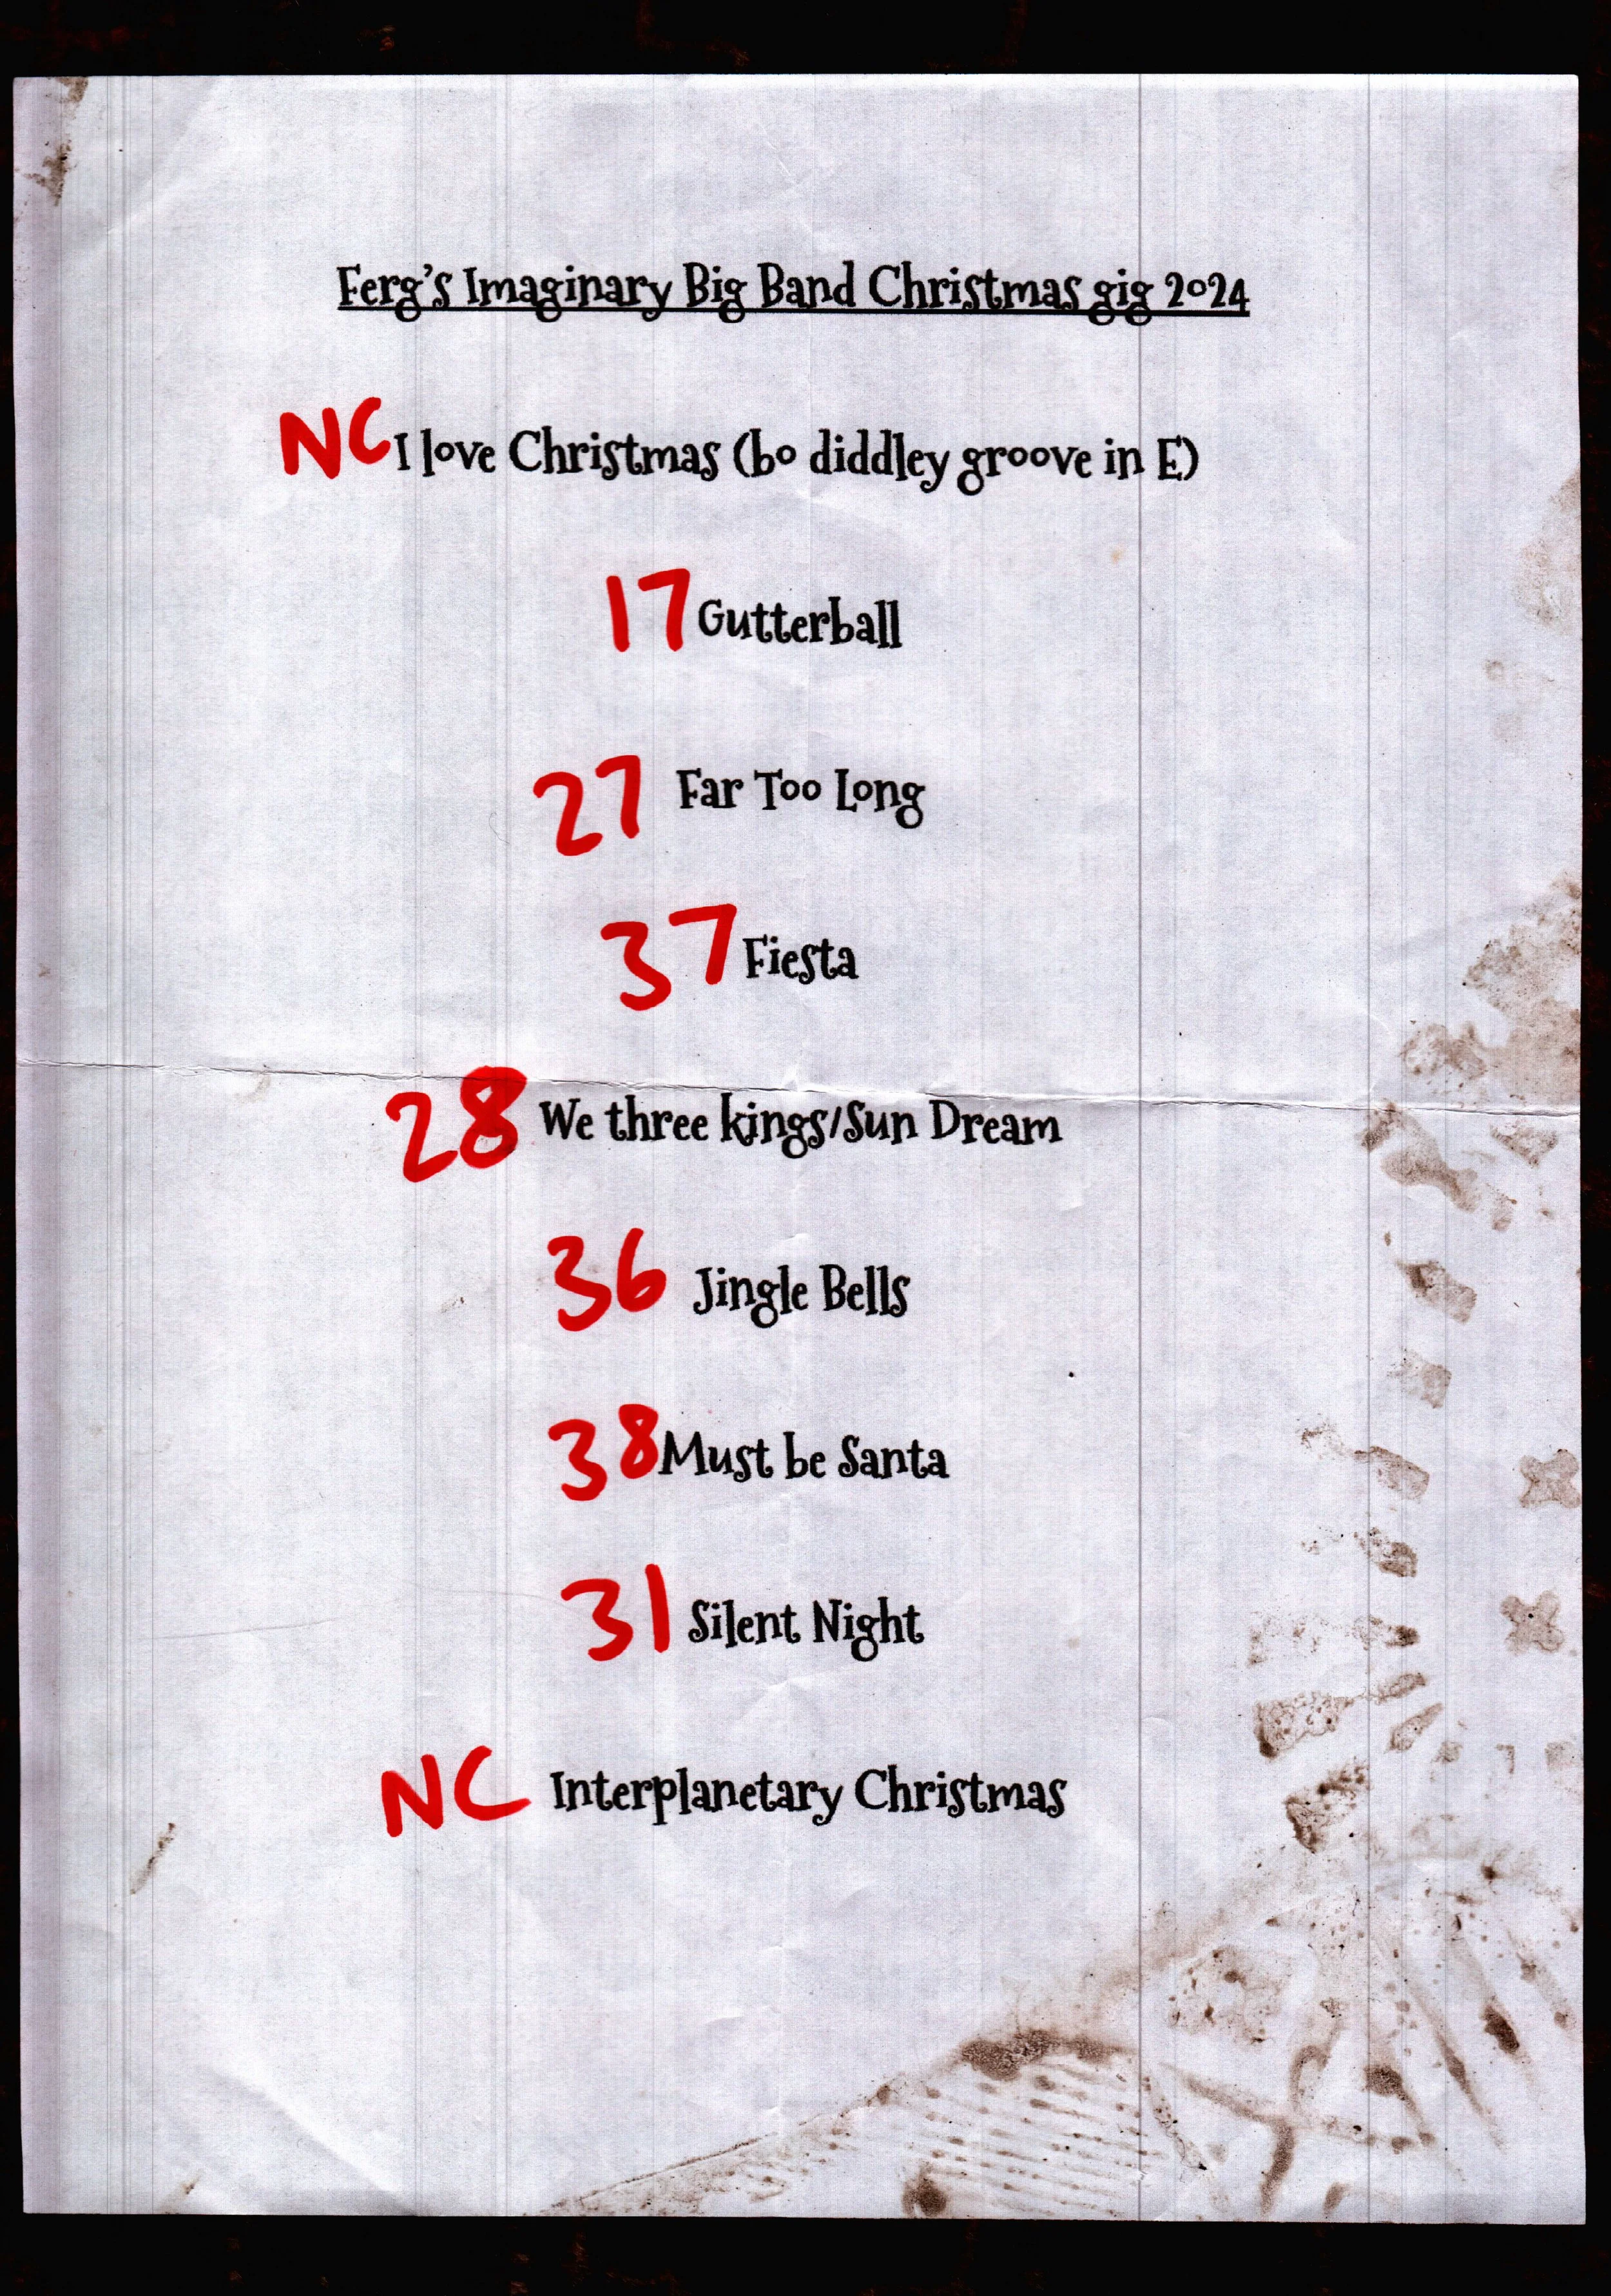 Ferg's Imaginary Big Band Christmas gig 2024
NC I love Christmas (bo diddley groove in E)
17 Gutterball
27 Far Too Long
37 Fiesta
28 We three kings/Sun Dream
36 Jingle Bells
38 Must be Santa
31 Silent Night
NC Interplanetary Christmas